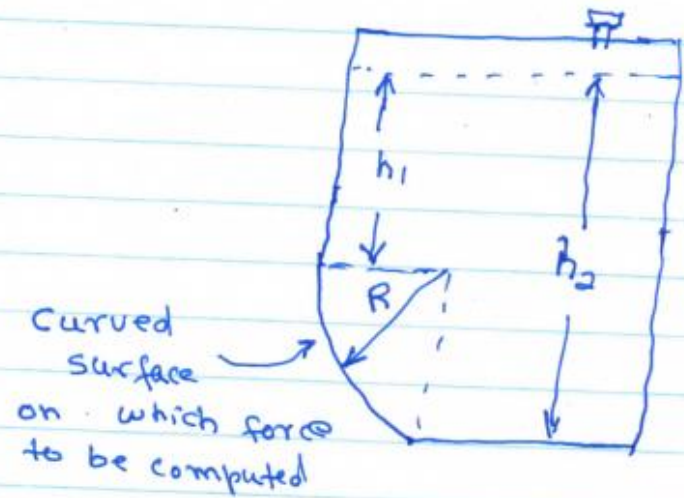 h1
h2
R
Curved
surface
on which force
to be computed